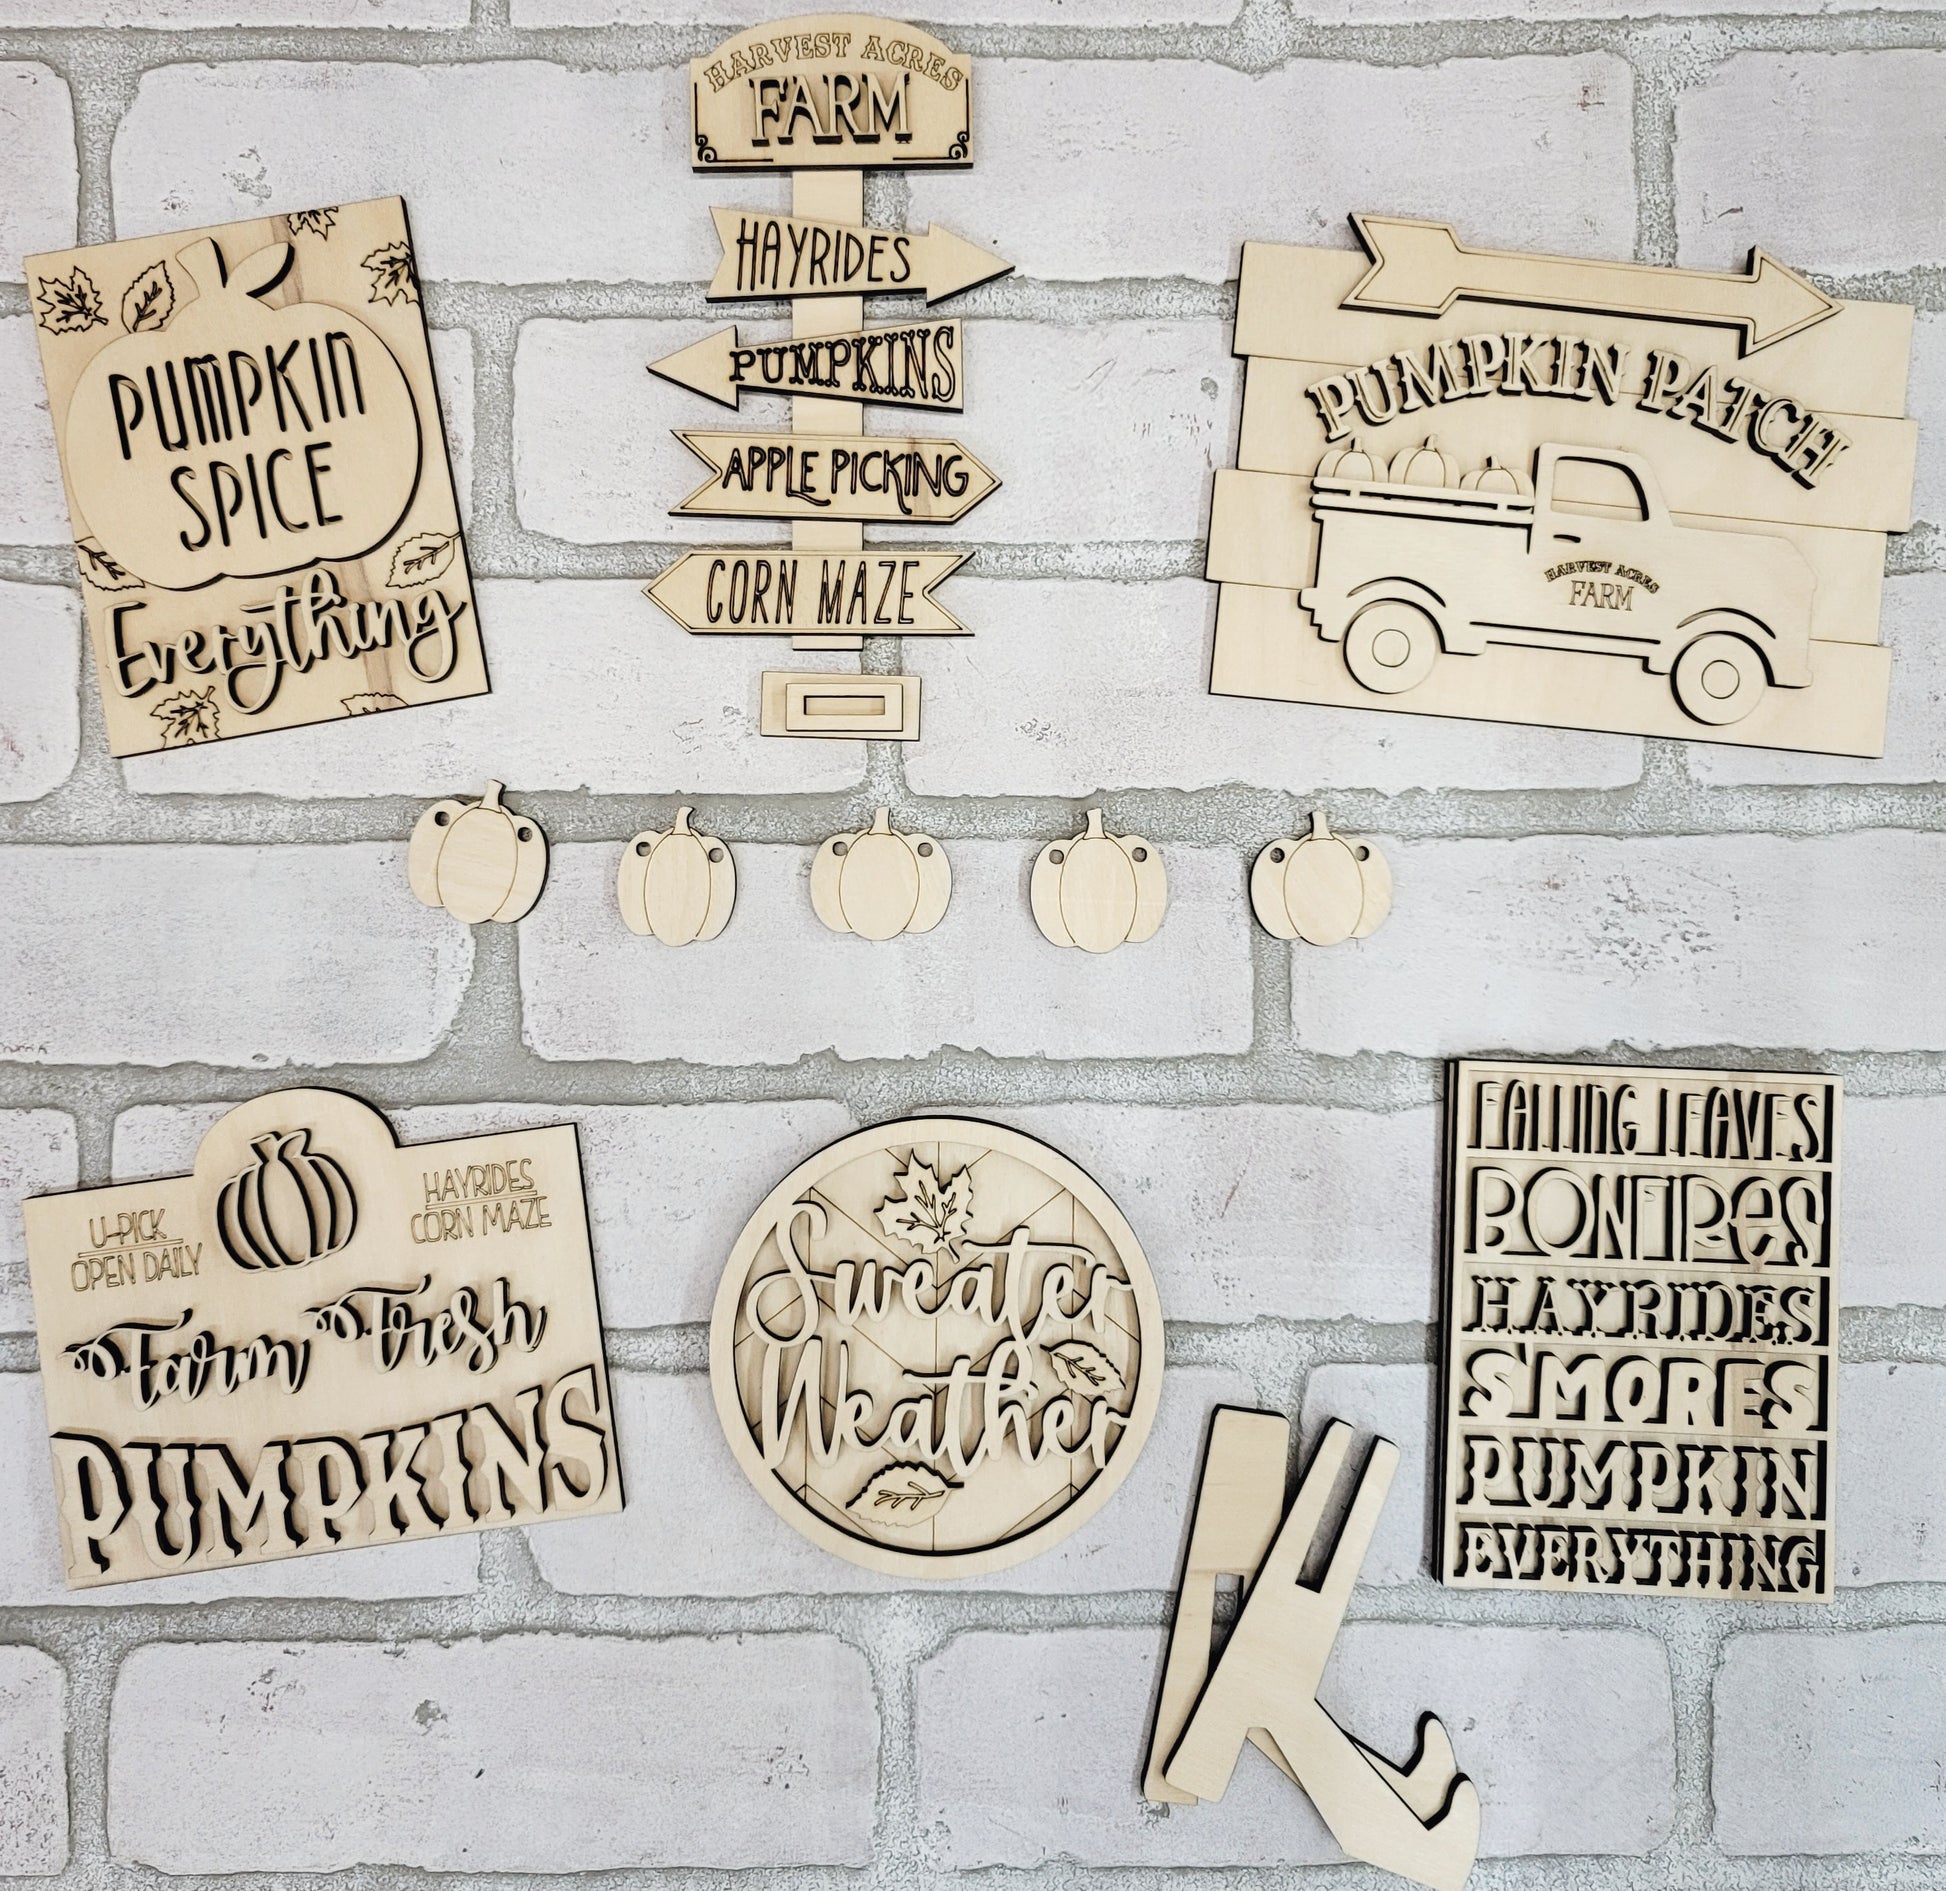 HARVEST ACRES
FARM
HAYRIDES
PUMPKINS
APPLE PICKING
CORN MAZE
PUMPKIN
SPICE
Everything
PUMPKIN PATCH
HARVEST ACRES
FARM
U-PICK
OPEN DAILY
HAYRIDES
CORN MAZE
Farm Fresh
PUMPKINS
Sweater
Weather
FALLING LEAVES
BONFIRes
HAYRIDES
S'MORES
PUMPKIN
EVERYTHING